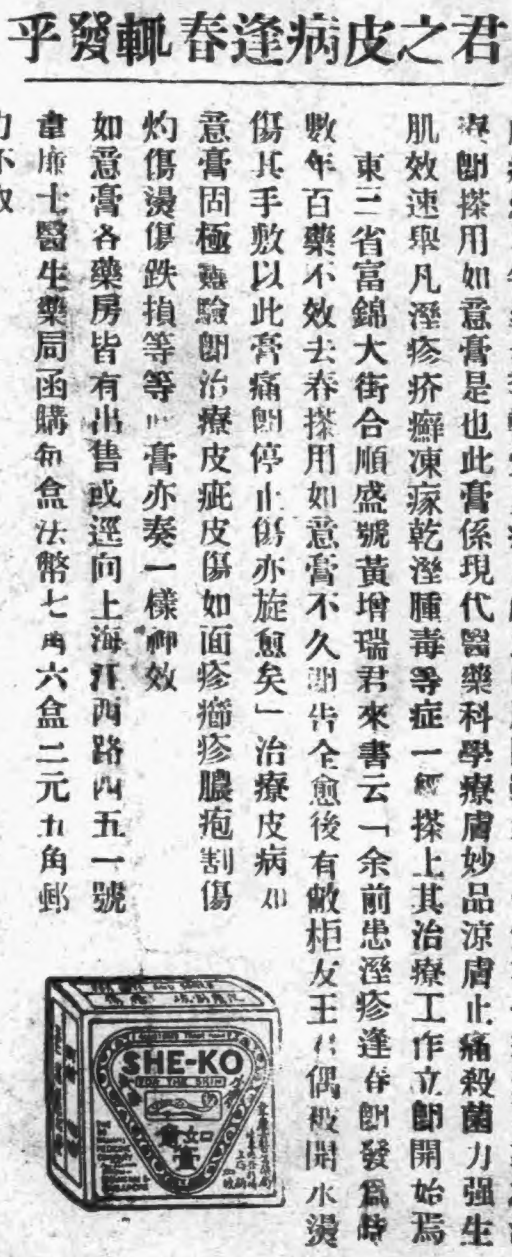 君之皮病逢春輒發乎
即搽用如意膏是也此膏係現代醫藥科學療膚妙品涼膚止痛殺菌力强生
肌效速舉凡溼疹疥癬凍瘃乾溼腫毒等症一經搽上其治療工作立即開始焉
東三省富錦大街合順盛號黃增瑞君來書云「余前患溼疹逢春即發爲時
數年百藥不效去春搽用如意膏不久即告全愈後有敝柜友王君偶被開水燙
傷其手敷以此膏痛即停止傷亦旋愈矣」治療皮病如
意膏固極靈驗即治療皮疵皮傷如面疹癤疹膿疱割傷
灼傷燙傷跌損等等此膏亦奏一樣神效
如意膏各藥房皆有出售或逕向上海江西路四五一號
韋廉士醫生藥局函購每盒法幣七角六盒二元九角郵
力不取
SHE-KO
FOR THE SKIN
如意膏